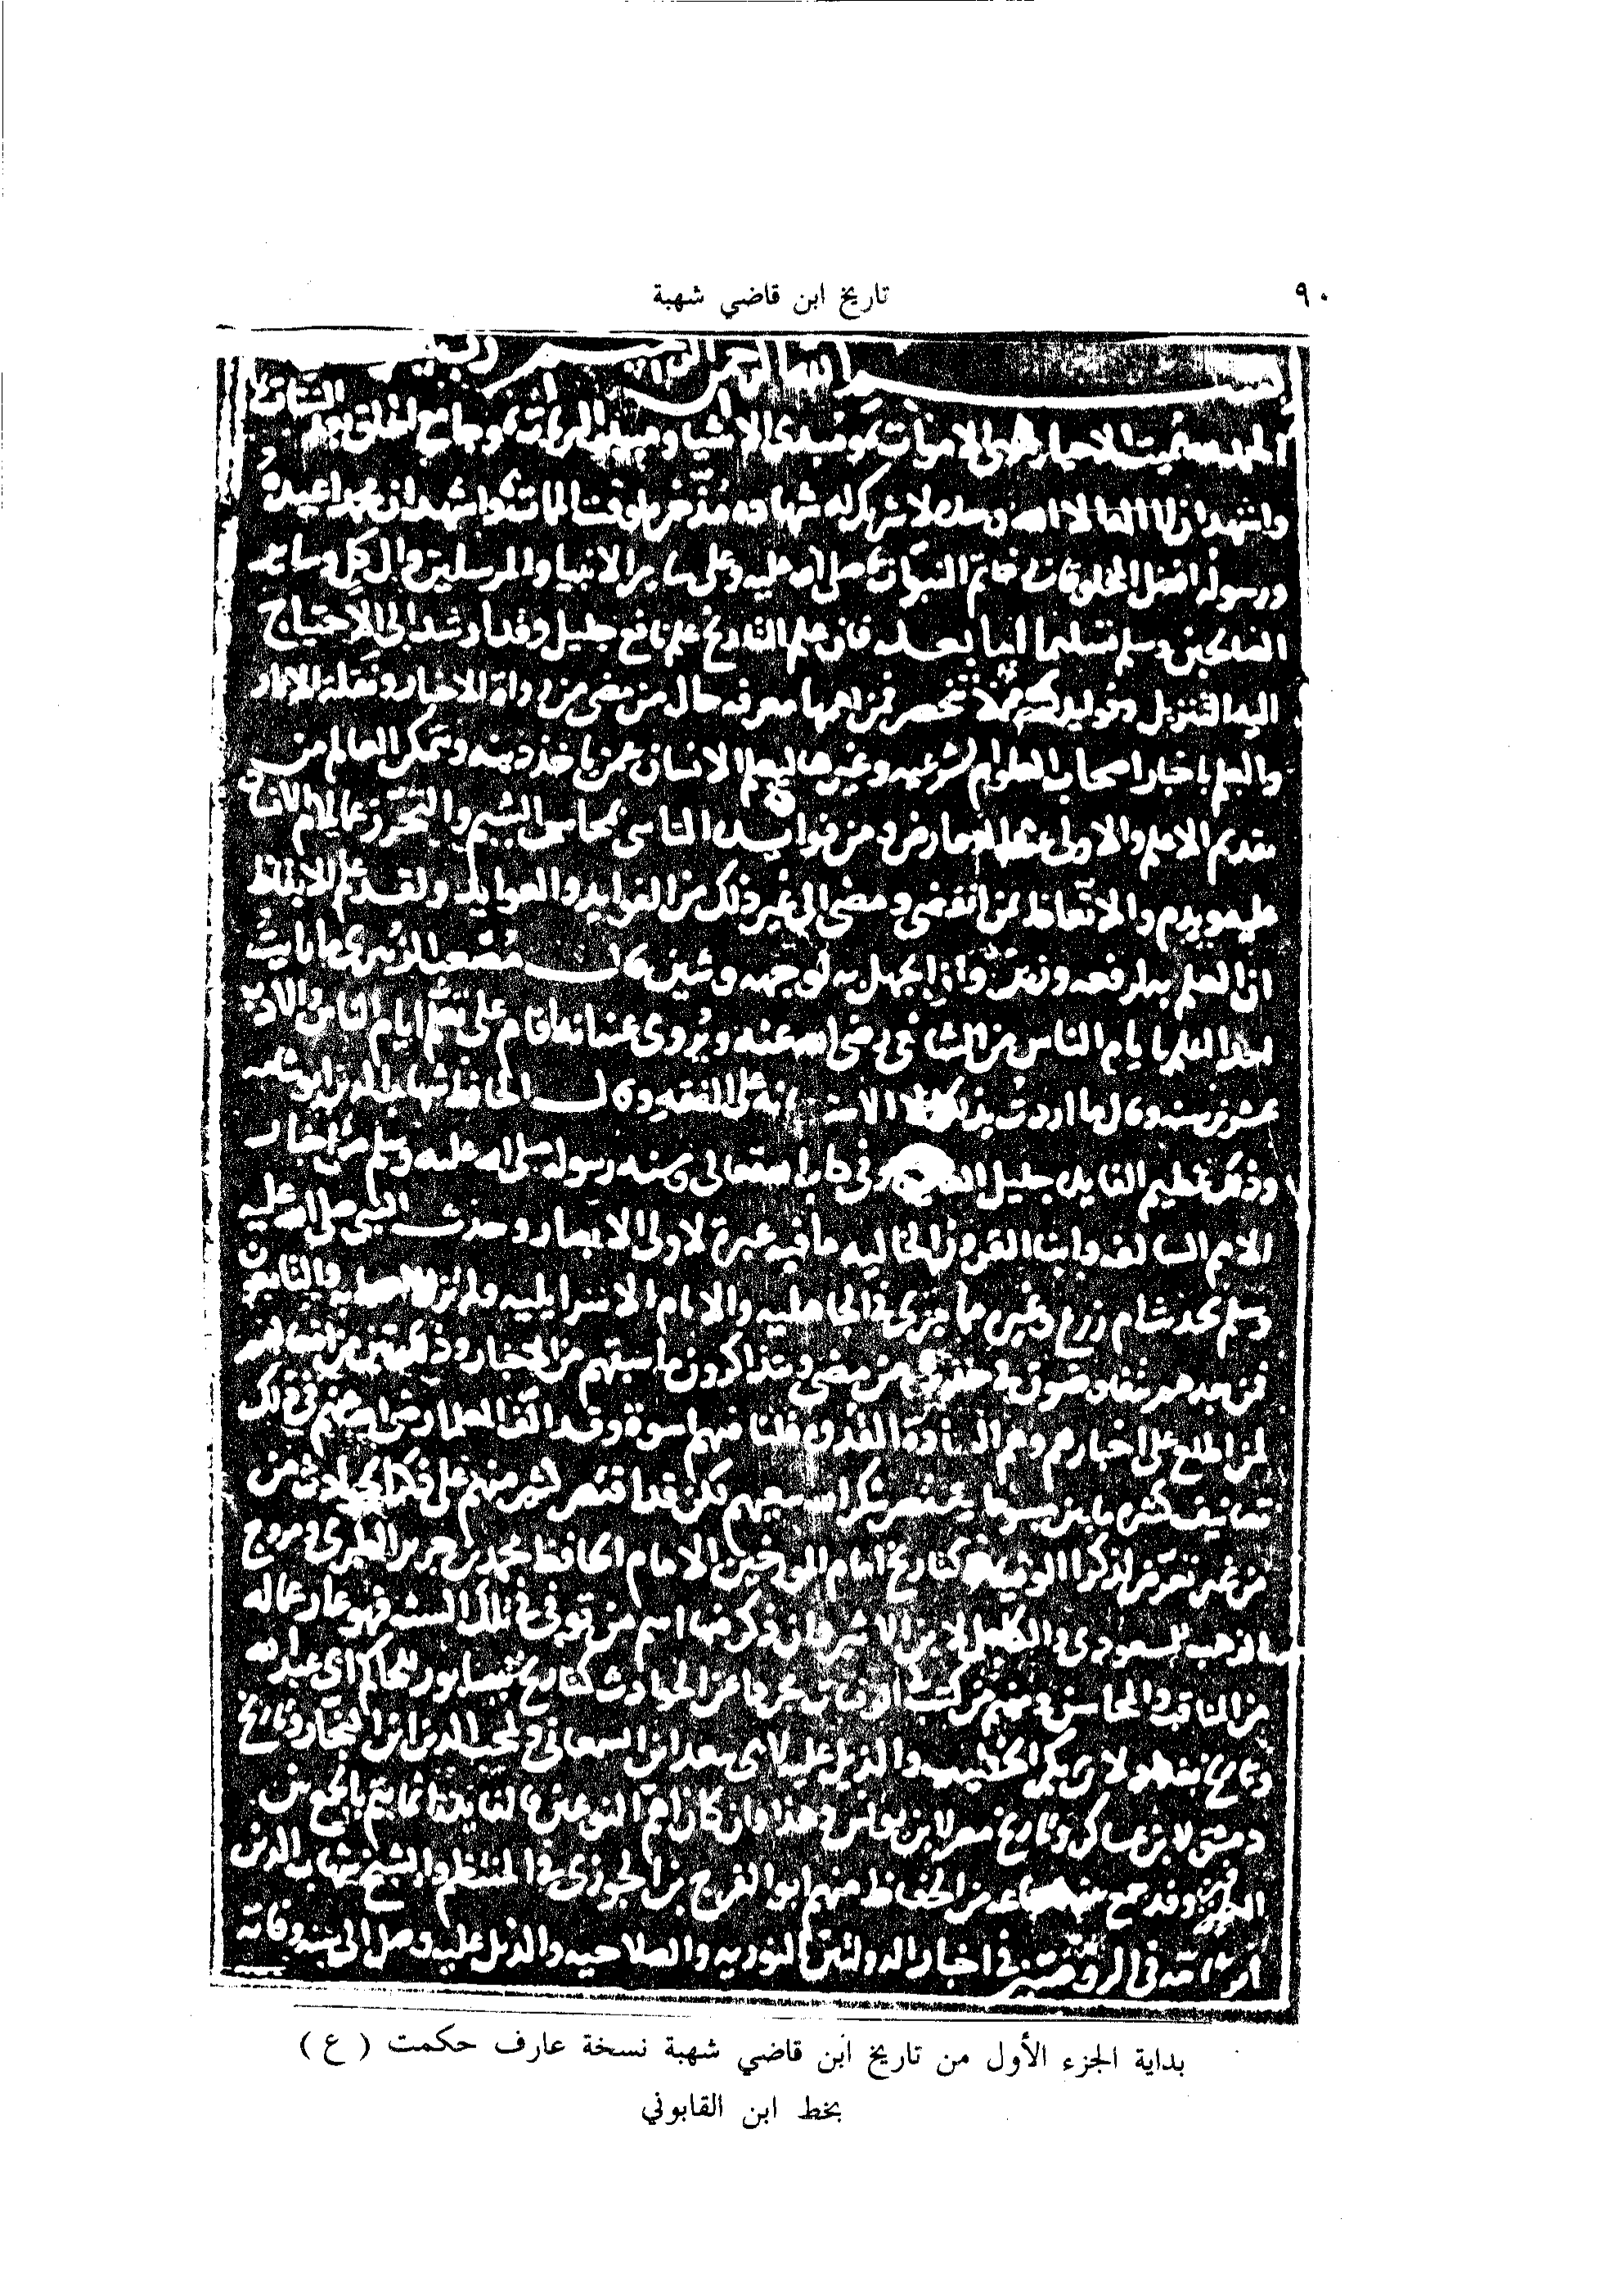 ٩٠
تاريخ ابن قاضي شهبة
بسم الله الرحمن الرحيم
الحمد لله مميت الاحيا ومحيي الاموات ومبدئ الاشيا ومبيد البريات وجامع الخلق بعد الشتات
واشهد ان لا اله الا الله وحده لا شريك له شهادة مدخرة لوقت الممات واشهد ان محمدا عبده
ورسوله افضل المخلوقات خاتم النبوات صلى الله عليه وعلى ساير الانبيا والمرسلين وال كل وساير
الصالحين وسلم تسليما اما بعد فان علم التاريخ علم نافع جليل وقد ارشد الى الاحتياج
اليه التنزيل وفوايده لا تنحصر فمن اهمها معرفة حال من مضى من رواة الاخبار ونقلة الاثار
والعلم باخبار اصحاب العلوم الشرعيه وغيرها ليعلم الانسان عمن ياخذ دينه ويتمكن العالم من
تقديم الاعلم والاولى عند التعارض ومن فوايده التاسي بمحاسن الشيم والتحرز عما يلام الانسان
عليه ويذم والاتعاظ بمن انقضى ومضى الى غير ذلك من الفوايد والعوايد ولقد علم الايقاظ
ان العلم به لرفعه وزين وان الجهل به لوجمه وشين قال مصعب الزبيري ما رايت
احدا اعلم بايام الناس من الشافعي رضي الله عنه ويروى عنه انه اقام على تعلم ايام الناس والادب
عشرين سنه وقال ما اردت بذلك الا الاستعانة على الفقه وقال الحافظ شهاب الدين ابو شامه
وذكره عظيم الفايده جليل في كتاب الله تعالى وسنه رسوله صلى الله عليه وسلم من اخبار
الامم السالفه وانبا القرون الخاليه ما فيه عبرة لاولى الابصار وحدث النبي صلى الله عليه
وسلم بحديث ام زرع وغيره مما جرى في الجاهليه والايام الاسرايليه ولم تزل الصحابه والتابعون
فمن بعدهم يتفاوضون في حديث من مضى ويتذاكرون ما سبقهم من الاخبار وذلك بين من افعالهم
لمن اطلع على اخبارهم وهم السادة القدوه فلنا فيهم اسوة وقد الف العلما رضي الله عنهم في ذلك
تصانيف كثيره ما بين مبسوط ومختصر شكر الله سعيهم لكن قد اقتصر كثير منهم على ذكر الحوادث من
من غير تعرض لذكر الوفيات كتاريخ امام المورخين الامام الحافظ محمد بن جرير الطبري ومروج
الذهب للمسعودي والكامل لابن الاثير وان ذكر فيها اسم من توفي في تلك السنه فهو عار عما له
من المناقب والمحاسن ومنهم من كتب الوفيات مجردا عن الحوادث كتاريخ نيسابور للحاكم ابي عبد الله
وتاريخ بغداد لابي بكر الخطيب والذيل عليه لابي سعد ابن السمعاني ولمحب الدين ابن النجار وتاريخ
دمشق لابن عساكر وتاريخ مصر لابن يونس وهذا وان كان اهم النوعين فالفايده انما تتم بالجمع بين
الفنين وقد جمع بينهما جماعه من الحفاظ منهم ابو الفرج بن الجوزي في المنتظم والشيخ شهاب الدين
ابو شامه في الروضتين في اخبار الدولتين النوريه والصلاحيه والذيل عليه وصل الى سنه وفاته
بداية الجزء الأول من تاريخ ابن قاضي شهبة نسخة عارف حكمت ( ع )
بخط ابن القابوني